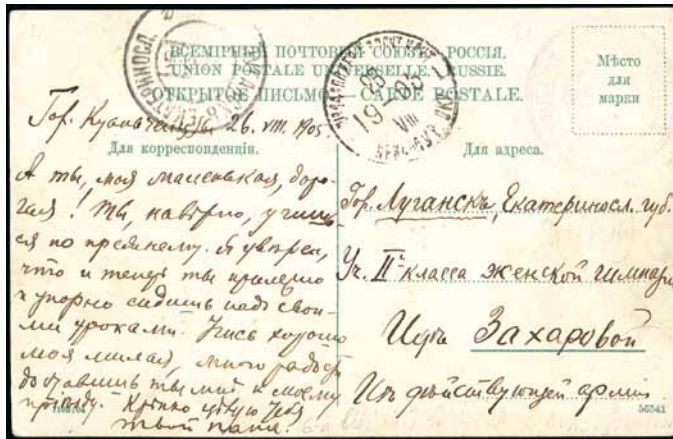 ВСЕМІРНЫЙ ПОЧТОВЫЙ СОЮЗЪ. РОССІЯ.
UNION POSTALE UNIVERSELLE. RUSSIE.
ОТКРЫТОЕ ПИСЬМО — CARTE POSTALE.
Мѣсто
для
марки
25
19-05
VIII
Гор. 26. VIII. 1905
Для корреспонденціи.
Для адреса.
А ты, моя маленькая, доро-
гая! Ты, навѣрно, учишь
ся по прежнему. Я увѣрен,
что и теперь ты прилежно
и упорно сидишь надъ свои-
ми уроками. Учись хорошо
моя милая, много радости
доставишь ты мнѣ к моему
пріѣзду. Крѣпко цѣлую тебя
твой папа.
Гор. Луганскъ, Екатериносл. губ.
Уч. IIго класса женской гимназіи
Идѣ Захаровой
Изъ дѣйствующей арміи
56541